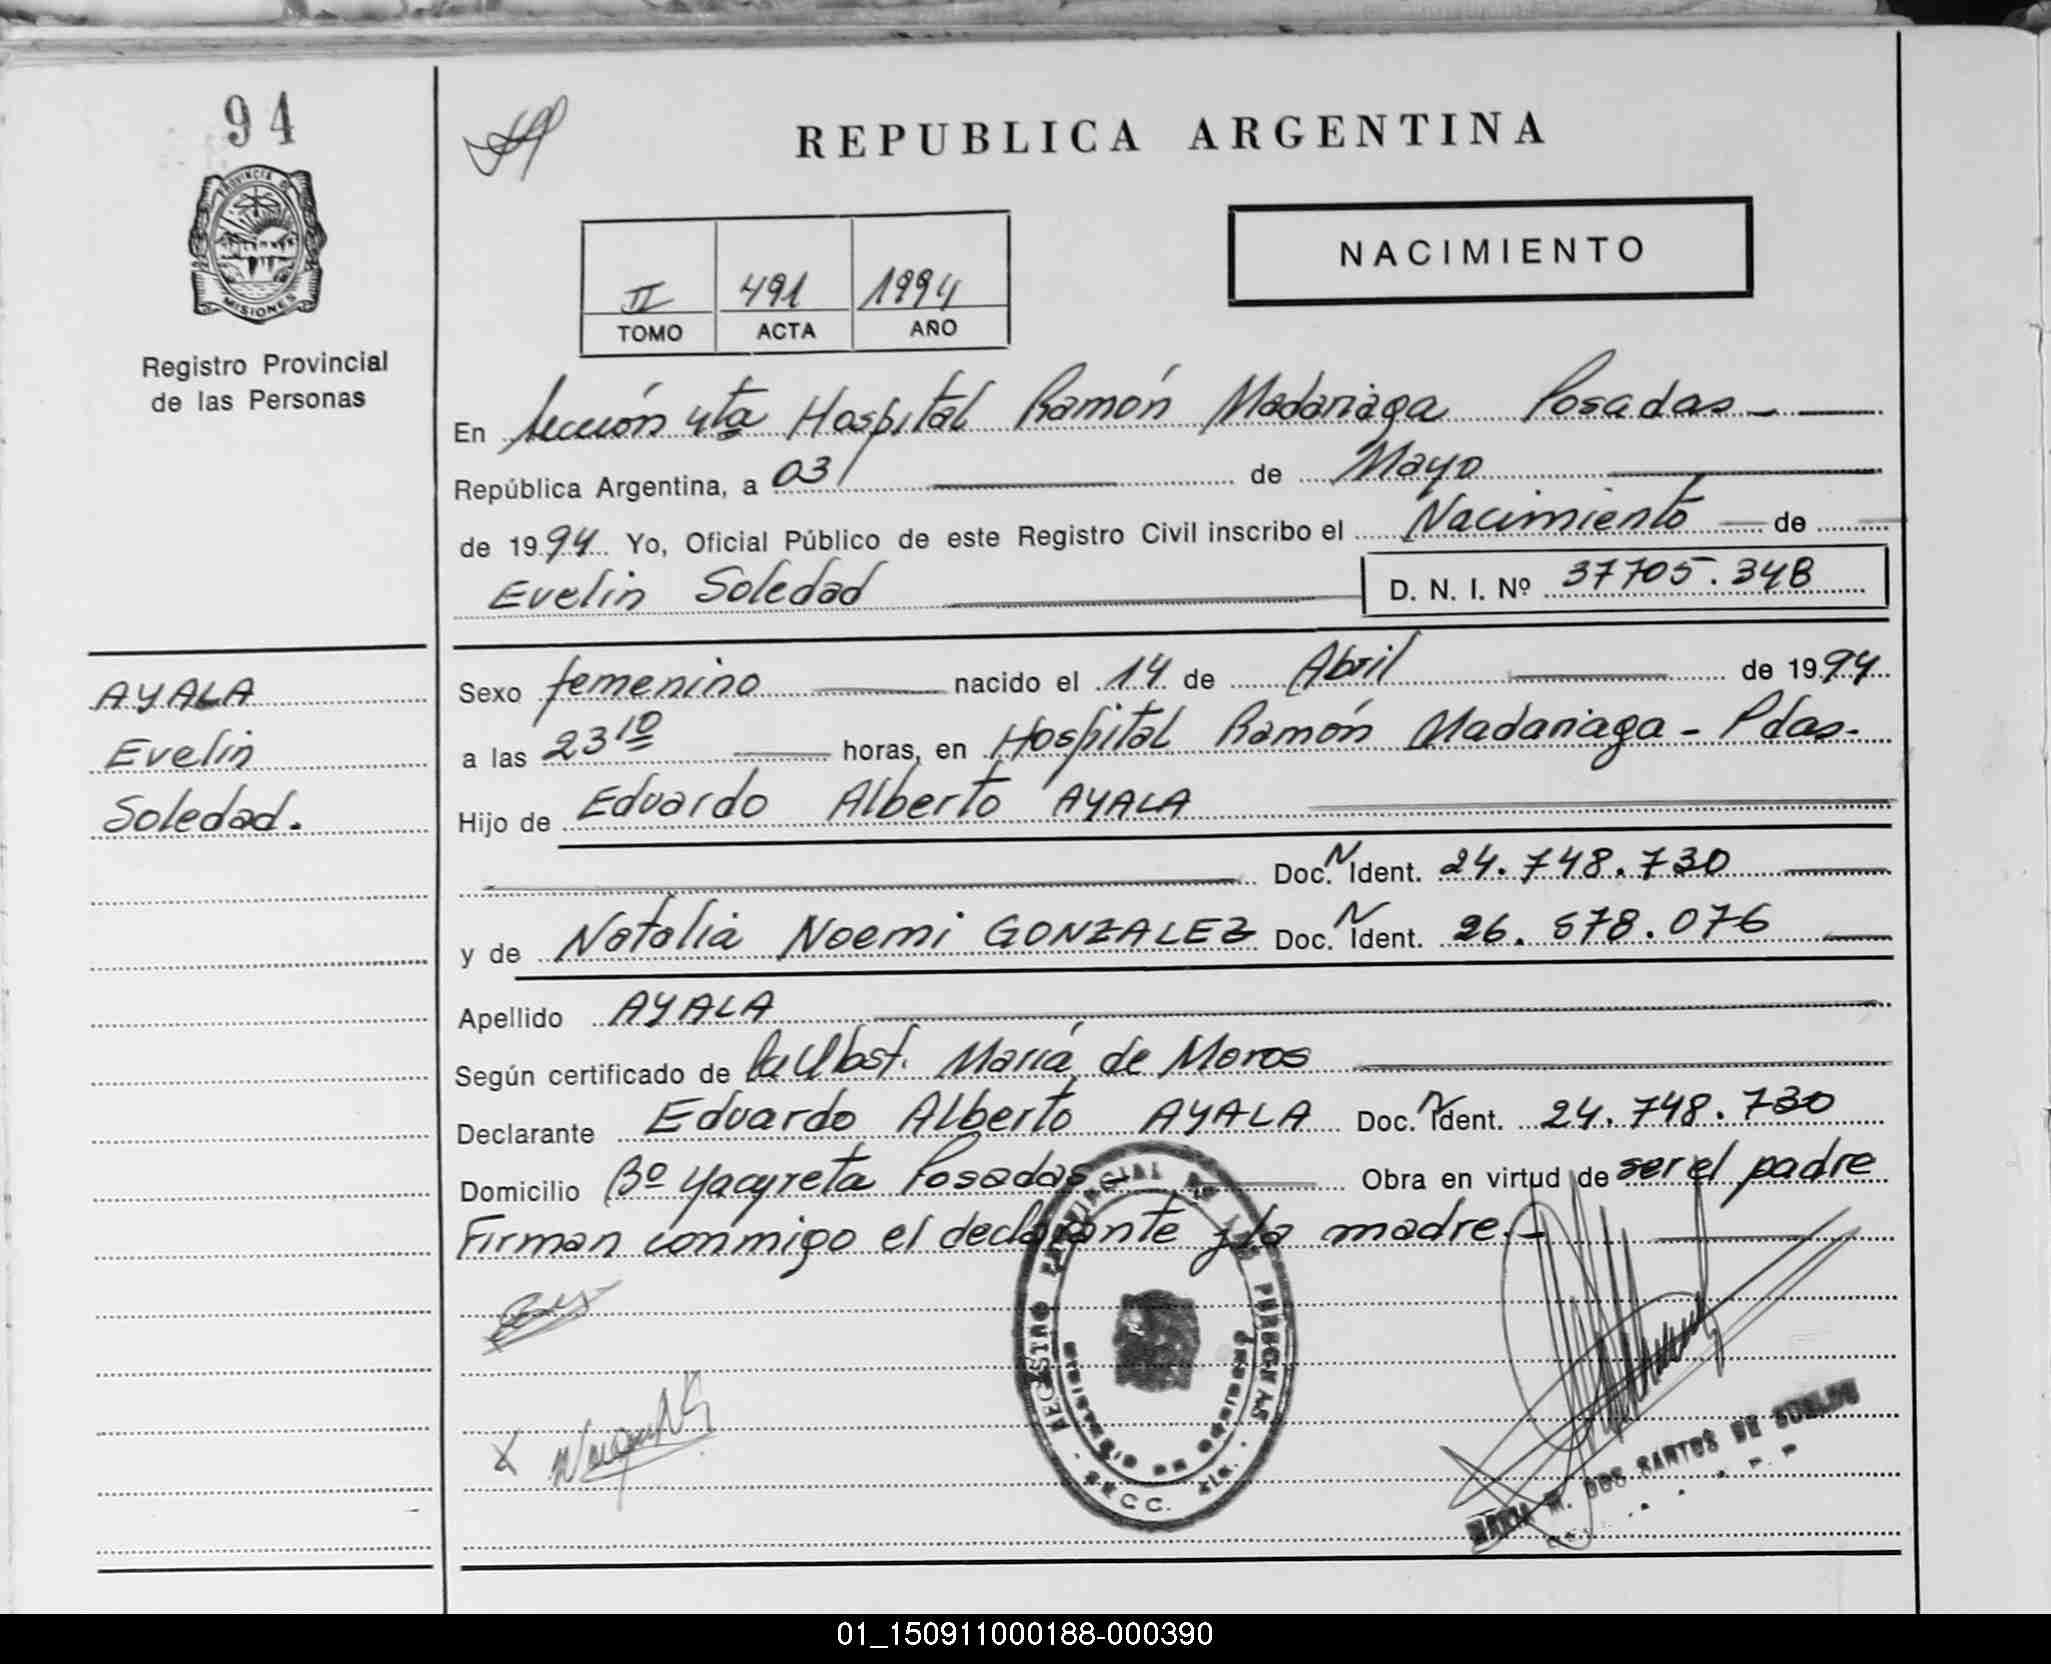 94
PROVINCIA DE
MISIONES
Registro Provincial
de las Personas
AYALA
Evelin
Soledad.
REPUBLICA ARGENTINA
NACIMIENTO
II 491 1994
TOMO ACTA AÑO
En Sección 4ta Hospital Ramón Madariaga Posadas
República Argentina, a 03 de Mayo
de 1994 Yo, Oficial Público de este Registro Civil inscribo el Nacimiento de
Evelin Soledad D. N. I. Nº 37705.348
Sexo femenino nacido el 14 de Abril de 1994
a las 23 10 horas, en Hospital Ramón Madariaga - Pdas-
Hijo de Eduardo Alberto AYALA
Doc. N Ident. 24.748.730
y de Natalia Noemi GONZALEZ Doc. N Ident. 26.578.076
Apellido AYALA
Según certificado de Obst. María de Moros
Declarante Eduardo Alberto AYALA Doc. N Ident. 24.748.730
Domicilio Bº Yacyreta Posadas Obra en virtud de ser el padre
Firman conmigo el declarante y la madre.-
REGISTRO PROVINCIAL DE LAS PERSONAS
SECC.
MARIA M. DOS SANTOS DE
01_150911000188-000390